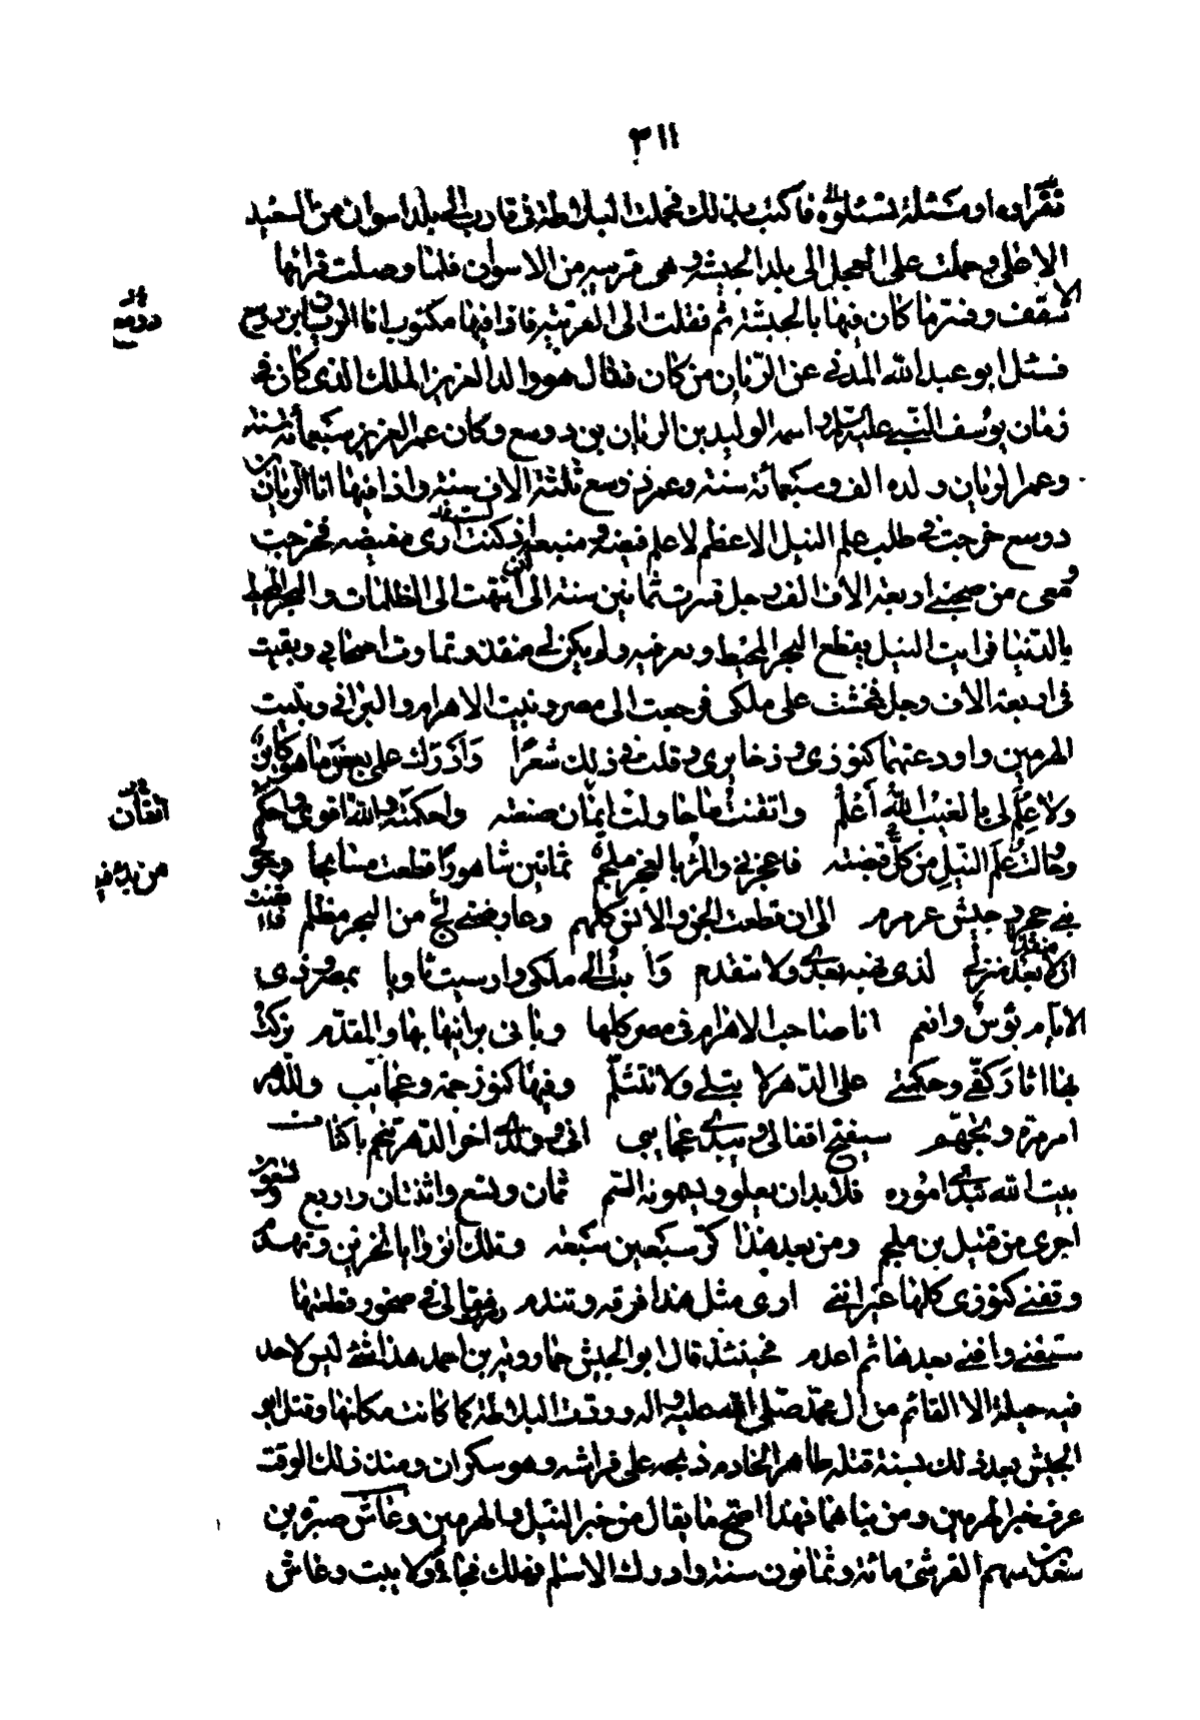 ٣١١
تقرأه او مسئلة تسئلوه فاكتب بذلك فحملت البلاطة في قارب الى بلد اسوان من السعيد
الاعلى وحملت على العجل الى بلد الحبشة وهي قريبة من الاسوان فلما وصلت قرائها
الاسقف وفسر ما كان فيها بالحبشة ثم نقلت الى العربية فاذا فيها مكتوب انا الريان بن دوسع
فسئل ابو عبد الله المدني عن الريان من كان فقال هو والد العزيز الملك الذي كان في
زمان يوسف النبي عليه السلام واسمه الوليد بن الريان بن دوسع وكان عمر العزيز سبعمائة سنة
وعمر الريان والده الف وسبعمائة سنة وعمر دوسع ثلثة الاف سنة واذا فيها انا الريان بن
دوسع خرجت في طلب علم النيل الاعظم لاعلم فيضه ومنبعه اذ كنت ارى مفيضه فخرجت
ومعي من صحبني اربعة الاف الف رجل فسرت ثمانين سنة الى ان انتهيت الى الظلمات والبحر المحيط
بالدنيا فرايت النيل يقطع البحر المحيط ويعبر فيه ولم يكن لي منفذ وتماوت اصحابي وبقيت
في اربعة الاف رجل فخشيت على ملكي فرجعت الى مصر وبنيت الاهرام والبرابي وبنيت
الهرمين واودعتهما كنوزي وذخايري وقلت في ذلك شعرا وادرك علمي بعض ما هو كاين
ولا علم لي بالغيب الله اعلم واتقنت ما حاولت اتقان صنعه واحكمته والله اقوى واحكم
وحاولت علم النيل من كل فيضه فاعجزني والمرء بالعجز ملجم ثمانين شاهورا قطعت مسايحا وحولي
بني حجر وجيش عرمرم الى ان قطعت الجن والانس كلهم وعارضني لج من البحر مظلم فايقنت
ان لا منفذا بعد منزلي لذي هيبة بعدي ولا متقدم وابت الى ملكي وارسيت ثاويا بمصر وفي
الايام بؤس وانعم انا صاحب الاهرام في مصر كلها وباني برابيها بها والمقدم تركت
بها اثار كفي وحكمتي على الدهر لا تبلى ولا تتثلم وفيها كنوز جمة وعجائب وللدهر
امر مرة وتجهم سيفتح اقفالي ويبدي عجايبي ولي اخر الدهر ينجم باكناف
بيت الله تبدي اموره فلا بد ان يعلو ويسمو به السم ثمان وتسع واثنتان واربع وتسعون
اخرى من قتيل وملجم ومن بعد هذا كر سبعين سبعة وتلك البرابي تستخر وتهدم
وتفنى كنوزي كلها غير انني ارى كل هذا ان يفرقه الدم رمزت مقالي في صخور قطعتها
ستبقى وافنى بعدها ثم اعدم فحينئذ قال ابو الجيش خمارويه بن احمد هذا شئ ليس لاحد
فيه حيلة الا القائم من ال محمد صلى الله عليه واله وردت البلاطة كما كانت مكانها وقتل ابو
الجيش بعد ذلك بسنة قتله طاهر الخادم ذبحه على فراشه وهو سكران ومنذ ذلك الوقت
عرف خبر الهرمين ومن بناهما فهذا اصح ما يقال من خبر النيل والهرمين وعاش صبرة بن
سعد بن سهم القرشي مائة وثمانون سنة وادرك الاسلام فهلك فجاءة ولا يبت وعاش
دومع
اتقان
من بدء فيه